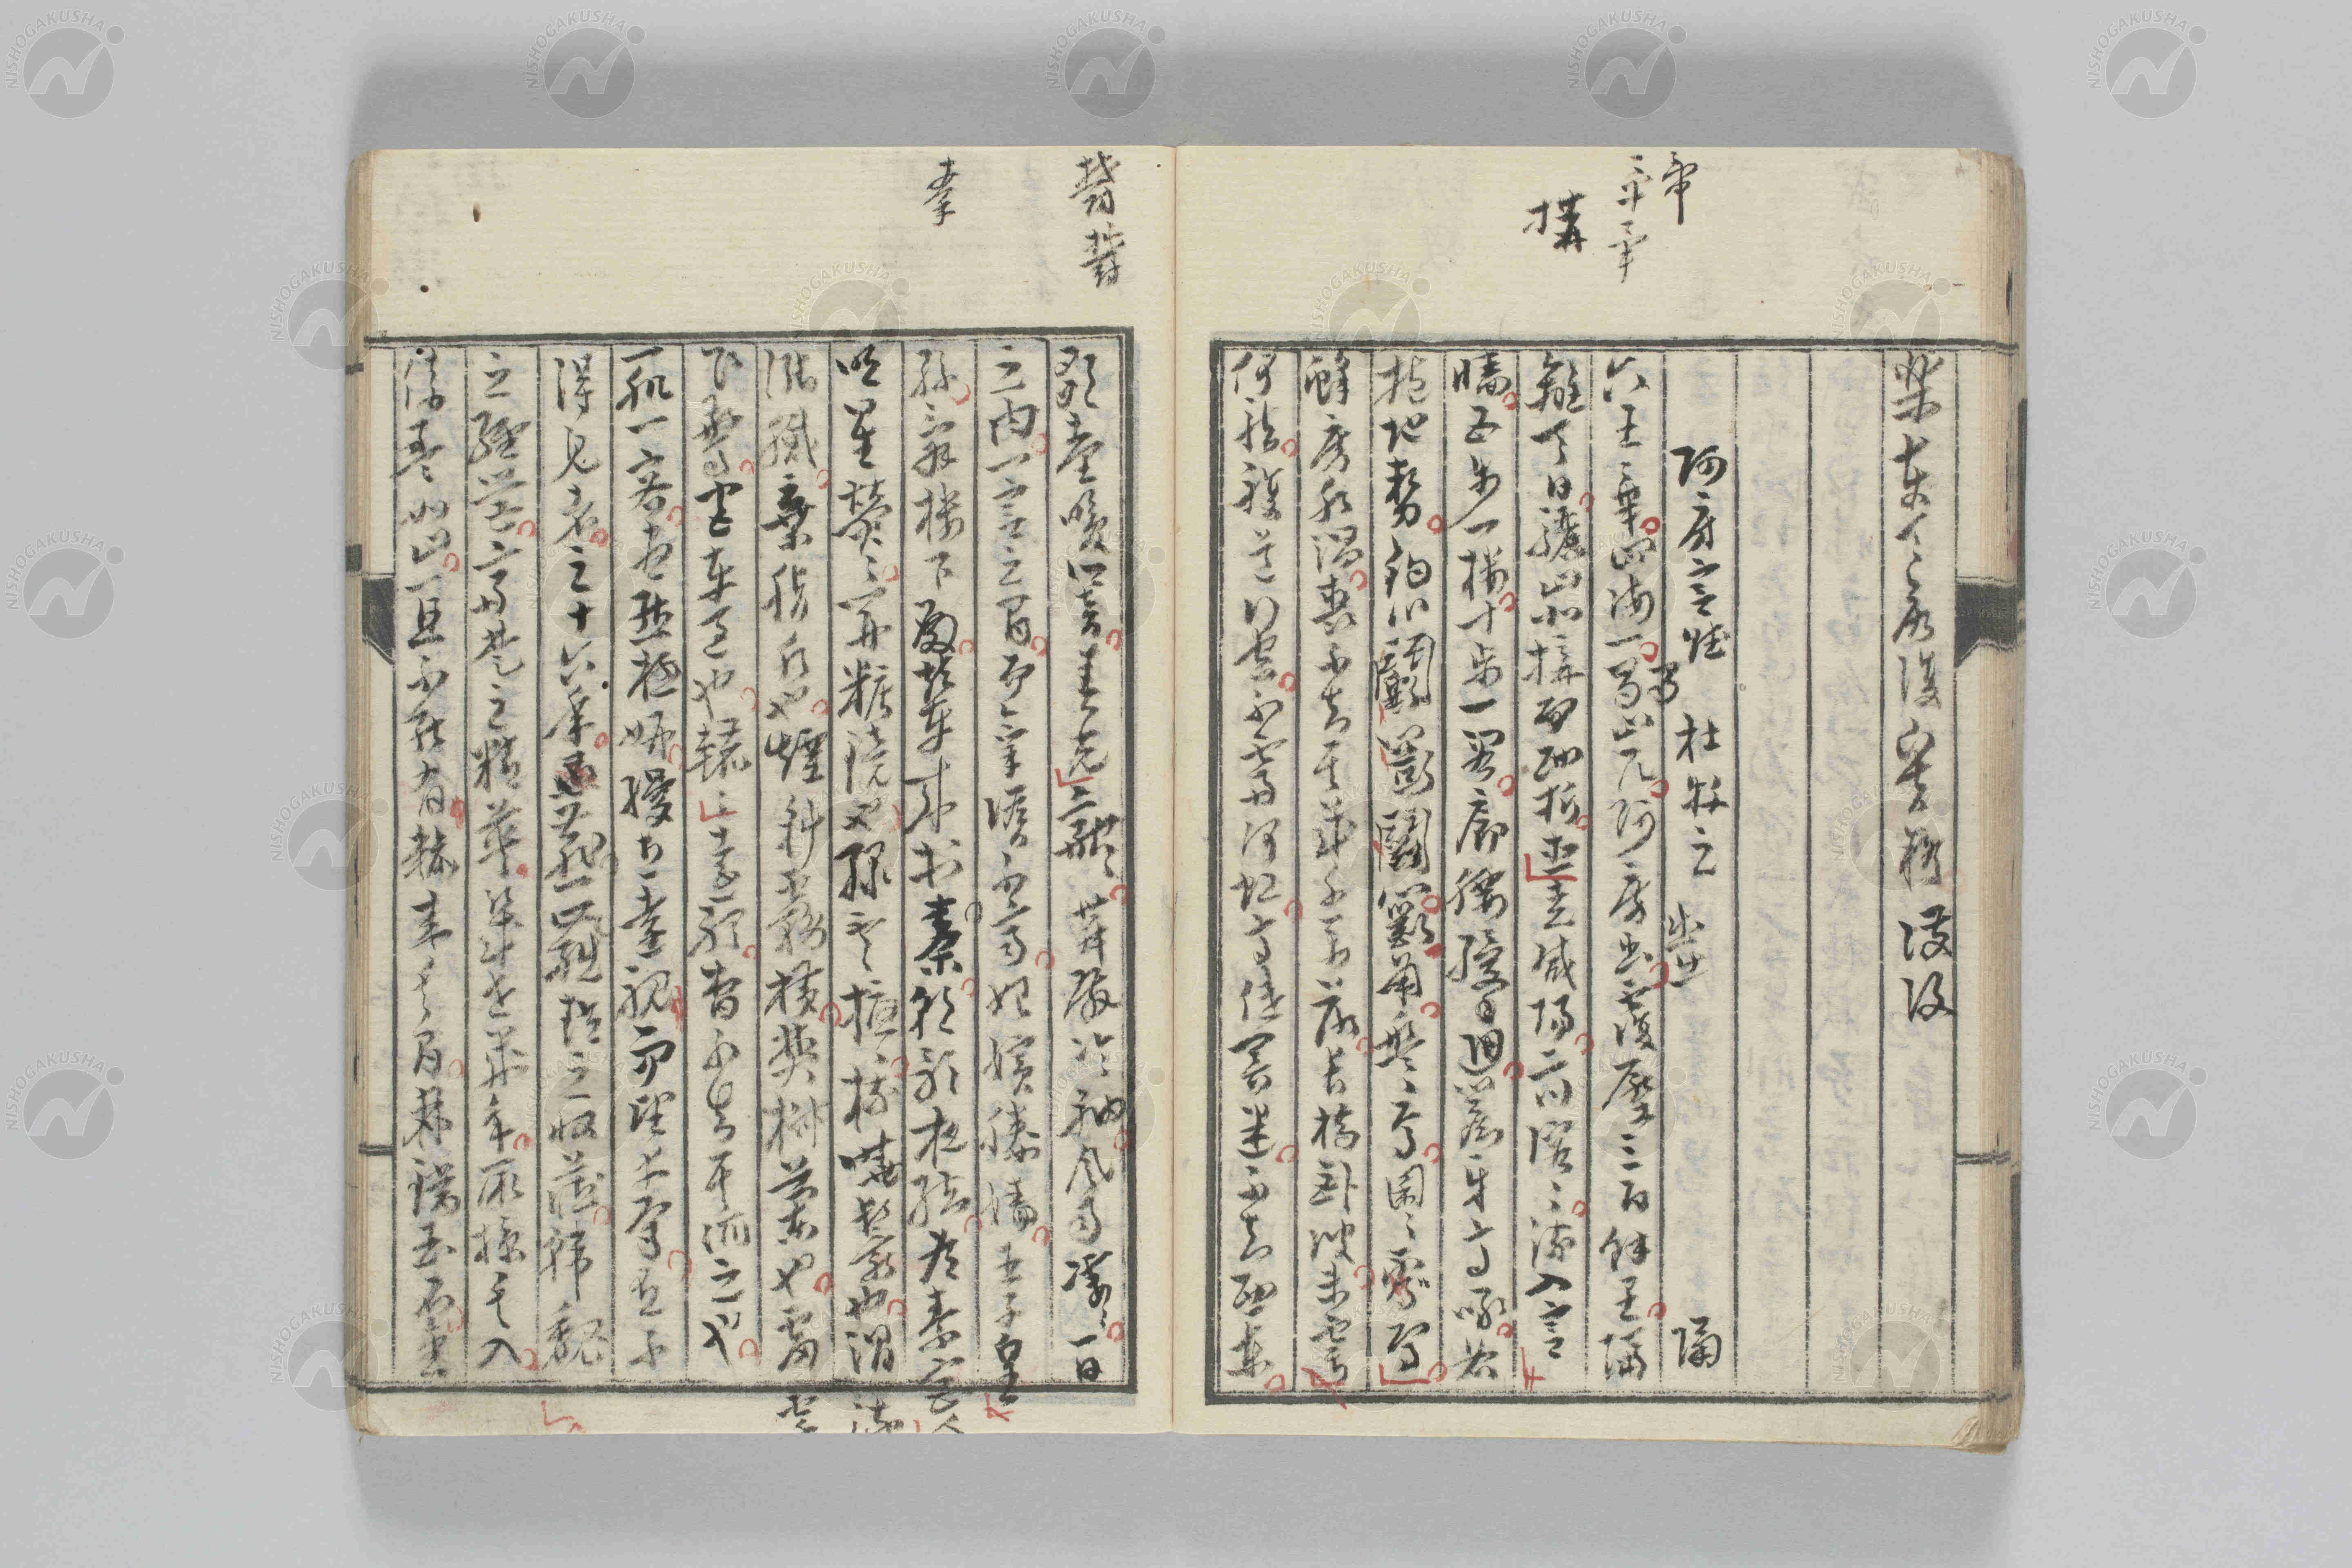 阿房宮賦 杜牧之 隔
六王畢四海一蜀山兀阿房出覆壓三百餘里隔
離天日驪山北構而西折直走咸陽二川溶々流入宮
墻五步一樓十步一閣廊腰縵廻簷牙高啄各
抱地勢鉤心鬪角盤々焉囷々焉
蜂房水渦矗不知其幾千萬落長橋臥波未雲
何龍複道行空不霽何虹高低冥迷不知西東
構
歌臺暖響春光融々舞殿冷袖風雨凄々一日
之内一宮之間而氣候不齊妃嬪媵嬙王子皇
孫辭樓下殿輦來於秦朝歌夜絃爲秦宮人
明星熒々開粧鏡也綠雲擾々梳曉鬟也渭流
漲膩棄脂水也煙斜霧橫焚椒蘭也雷霆
乍驚宮車過也轆々遠聽杳不知其所之也
一肌一容盡態極妍縵立遠視而望幸焉有不
得見者三十六年燕趙之收藏韓魏
之經營齊楚之精英幾世幾年取掠其人
倚疊如山一旦不能有輸來其間鼎鐺玉石金
NISHOGAKUSHA